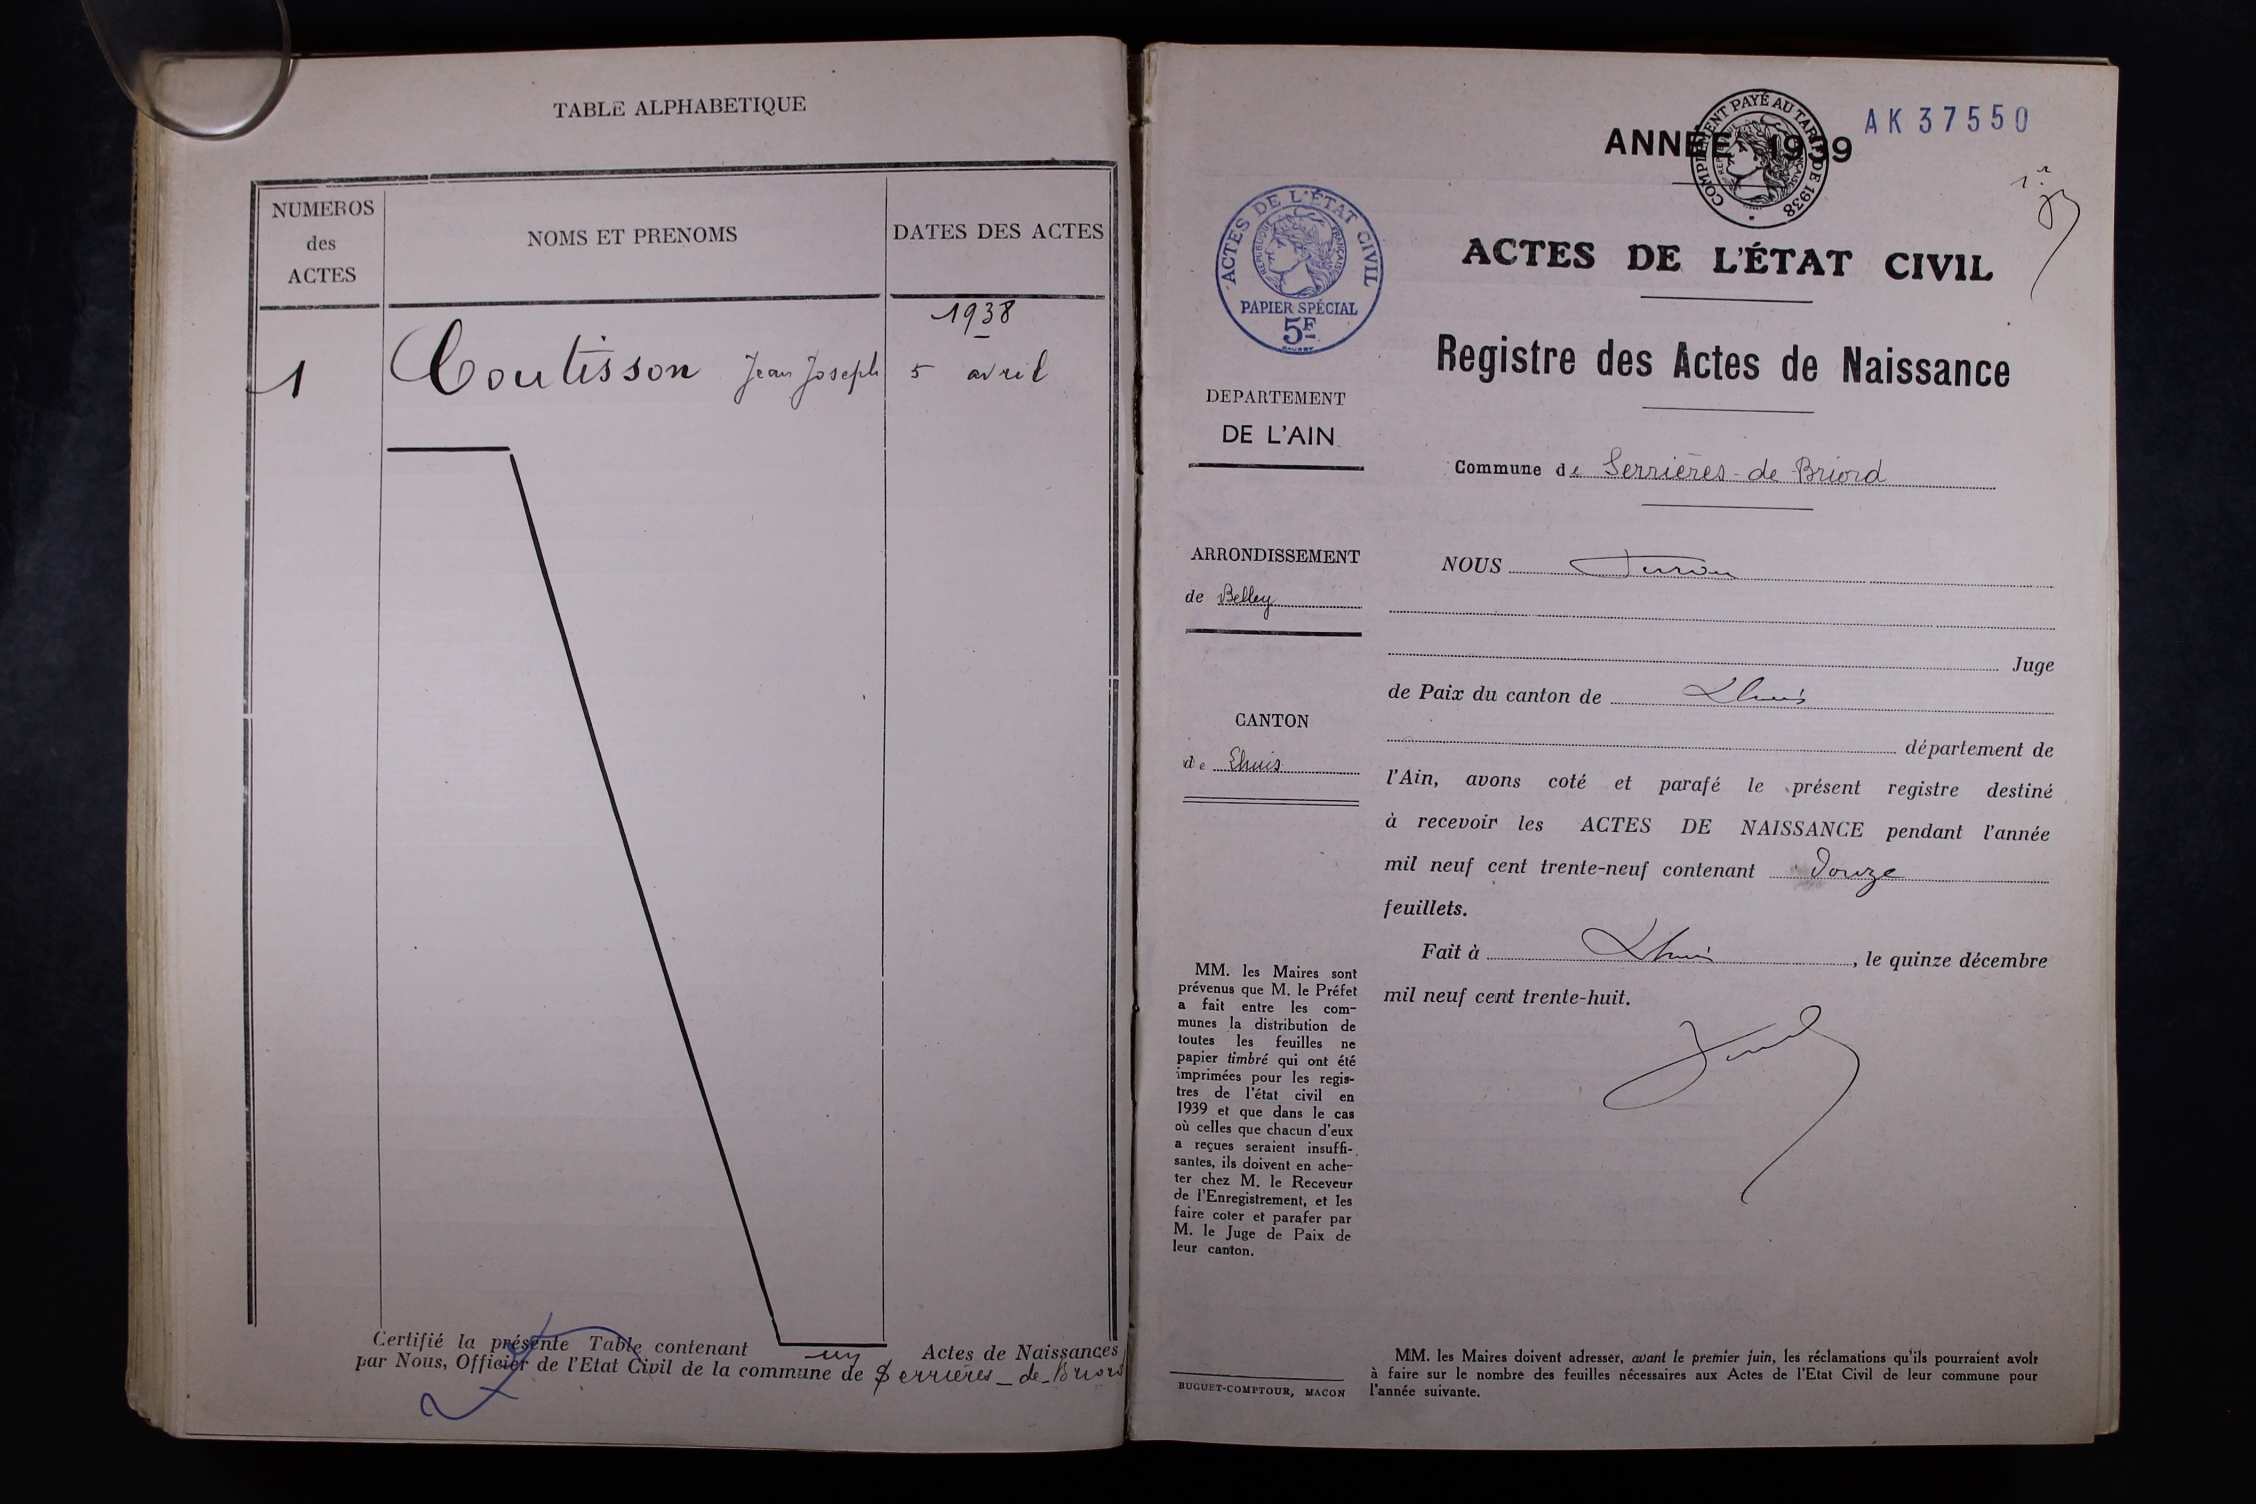 TABLE ALPHABETIQUE
NUMEROS
des
ACTES
NOMS ET PRENOMS
DATES DES ACTES
1938
1 Coutisson Jean Joseph 5 avril
Certifié la présente Table contenant un Actes de Naissances
par Nous, Officier de l'Etat Civil de la commune de Serrières-de-Briord
AK 37550
ANNÉE 1939
COMPLEMENT PAYÉ AU TARIF DE 1938
ACTES DE L'ÉTAT CIVIL
REPUBLIQUE FRANÇAISE
PAPIER SPÉCIAL
5F
ACTES DE L'ÉTAT CIVIL
Registre des Actes de Naissance
DEPARTEMENT
DE L'AIN
Commune de Serrières-de Briord
ARRONDISSEMENT
de Belley
CANTON
de Lhuis
NOUS
Juge
de Paix du canton de Lhuis
département de
l'Ain, avons coté et parafé le présent registre destiné
à recevoir les ACTES DE NAISSANCE pendant l'année
mil neuf cent trente-neuf contenant douze
feuillets.
Fait à Lhuis, le quinze décembre
mil neuf cent trente-huit.
MM. les Maires sont
prévenus que M. le Préfet
a fait entre les com-
munes la distribution de
toutes les feuilles ne
papier timbré qui ont été
imprimées pour les regis-
tres de l'état civil en
1939 et que dans le cas
où celles que chacun d'eux
a reçues seraient insuffi-
santes, ils doivent en ache-
ter chez M. le Receveur
de l'Enregistrement, et les
faire coter et parafer par
M. le Juge de Paix de
leur canton.
BUGUET-COMPTOUR, MACON
MM. les Maires doivent adresser, avant le premier juin, les réclamations qu'ils pourraient avoir
à faire sur le nombre des feuilles nécessaires aux Actes de l'Etat Civil de leur commune pour
l'année suivante.